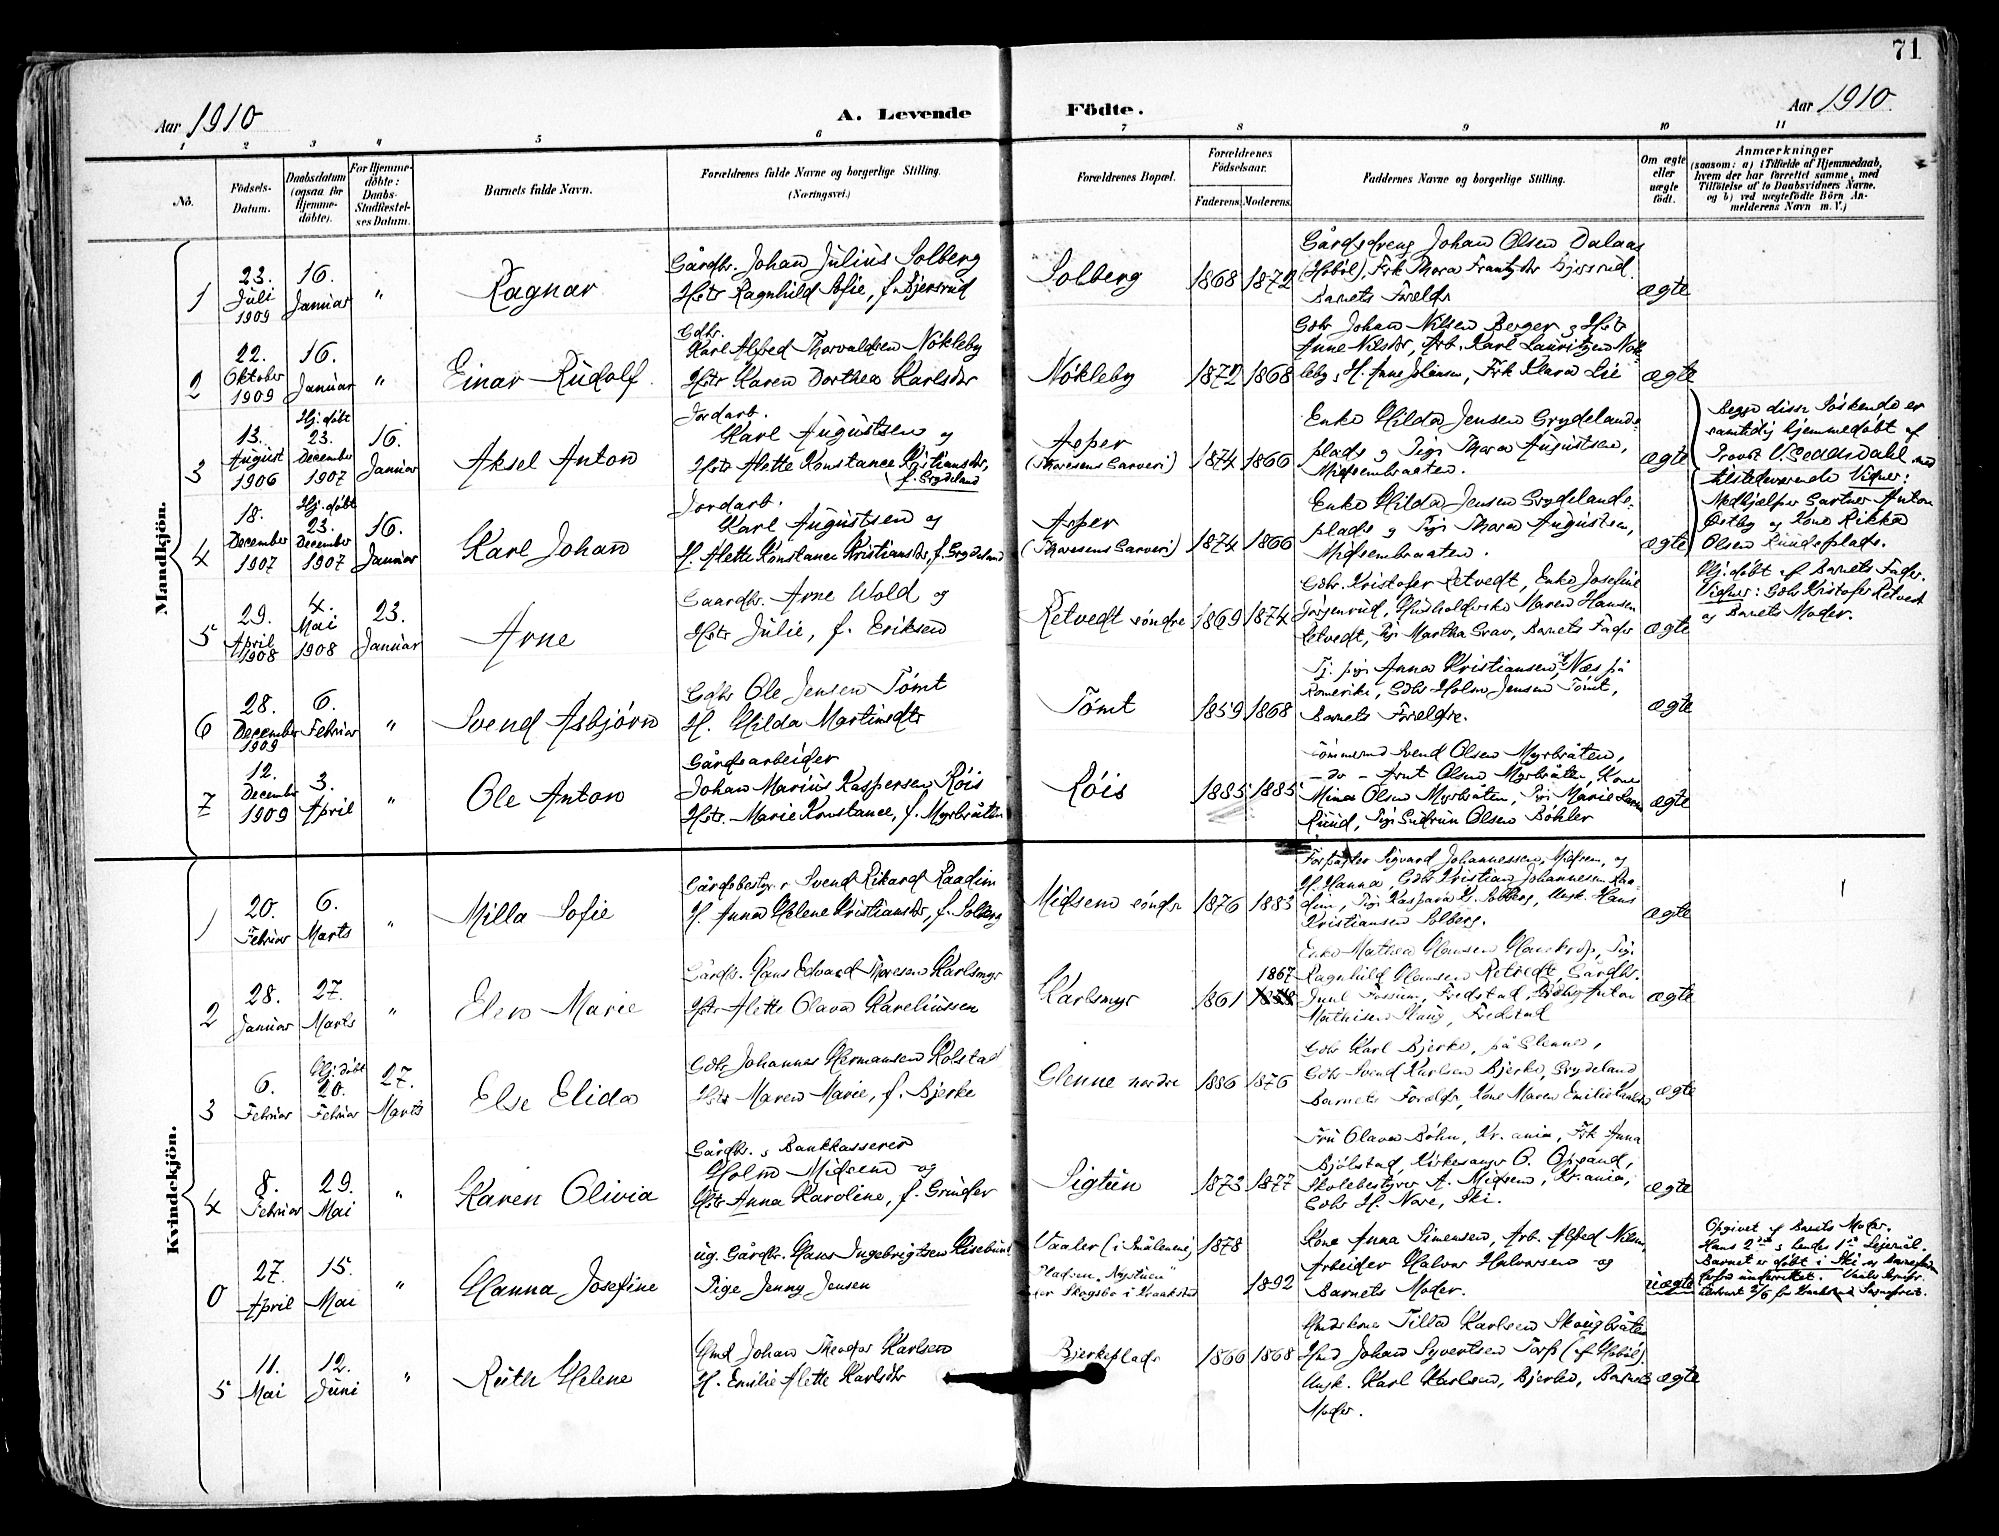 71
Aar 1910
A. Levende Födte.
Aar 1910
1 2 3 4 5 6 7 8 9 10 11
No.
Födsels-Datum.
Daabsdatum (ogsaa for Hjemme-döbte).
For Hjemme-döbte: Daabs-Stadfæstel-ses Datum.
Barnets fulde Navn.
Forældrenes fulde Navne og borgerlige Stilling. (Næringsvei.)
Forældrenes Bopæl.
Forældrenes Födselsaar.
Faderens. Moderens.
Faddernes Navne og borgerlige Stilling.
Om ægte eller uægte födt.
Anmærkninger
(saasom: a) i Tilfælde af Hjemmedaab,
hvem der har forrettet samme, med
Tilföielse af to Daabsvidners Navne,
og b) ved uægtefödte Börn An-
melderens Navn m. V.)
Mandkjön.
1
23. Juli 1909
16. Januar
"
Ragnar
Gårdbr. Johan Julius Solberg
Hstr Ragnhild Sofie, f. Bjersrud
Solberg
1868 1872
Gårdsdreng Johan Olsen Dalaas
(Hobøl), Frk Thora Frantzdtr Bjersrud.
Barnets Foreldr
ægte
2
22. Oktober 1909
16. Januar
"
Einar Rudolf.
Gdbr.
Karl Alfred Thorvaldsen Nökleby
Hstr Karen Dorthea Karlsdtr
Nökleby
1872 1868
Gdbr Johan Nilsen Berger og Hstr
Anne Nilsdtr, Arb. Karl Lauritzen Nök-
leby, H. Anne Johansen, Frk Klara Lie
ægte
3
13. August 1906
Hj. døbt 23. December 1907
16. Januar
Aksel Anton
Jordarb.
Karl Augustsen og
Hstr Alette Konstance Kristiansdtr,
f. Grydeland
Asper
(Thoresens Garveri)
1874 1866
Enke Hilda Jensen Grydelands-
plads og Pige Thora Augustsen,
Midsembraaten.
ægte
Begge disse Söskende er
samtidig hjemmedøbt af
Provst V. Seddsdahl med
tilstedeværende Vidner:
Medhjælper Gartner Anton
Østby og Kone Rikka
Olsen Rundeplads.
4
18. December 1907
Hj. døbt 23. December 1907
16. Januar
Karl Johan
Jordarb.
Karl Augustsen og
H. Alette Konstance Kristiansdtr, f. Grydeland
Asper
(Thoresens Garveri)
1874 1866
Enke Hilda Jensen Grydelands-
plads og Pige Thora Augustsen,
Midsembraaten.
ægte
5
29. April 1908
4. Mai 1908
23. Januar
Arne
Gaardbr. Arne Wold og
Hstr Julie, f. Eriksen
Retvedt søndre
1869 1874
Gdbr. Kristofer Retvedt, Enke Josefine
Jörgenrud, Husholderske Maren Hansen
Retvedt, Pige Martha Grav, Barnets Fader
ægte
Hj. døbt af Barnets Fader.
Vidner: Gdbr Kristofer Retvedt
og Barnets Moder.
6
28. December 1909
6. Februar
"
Svend Asbjørn
Gdbr Ole Jensen Tømt
H. Hilda Martinsdtr
Tømt
1859 1868
Tj. pige Anna Kristiansen, af Næs på
Romerike, Gdbr Holm Jensen Tømt,
Barnets Foreldre.
ægte
7
12. December 1909
3. April
"
Ole Anton
Gårdsarbeider
Johan Marius Kaspersen Röis
Hstr. Marie Konstance, f. Myrbråten
Röis
1885 1885
Tömmermd Svend Olsen Myrbråten,
— do — Arnt Olsen Myrbråten, Kone
Mina Olsen Myrbråten, Pige Marie
Ruud, Pige Gudrun Olsen Böhler
ægte
Kvindekjön.
1
20. Februar
6. Marts
"
Milla Sofie
Gårdsbestyrer Svend Rikard Raadim
H. Anna Helene Kristiansdtr, f. Solberg
Midsem söndr
1876 1883
Forpagter Sigvard Johannessen, Midsem, og
H. Hanna, Gdbr Kristian Johannesen Raa-
dim, Pige Kaspara K. Solberg, Ungk. Hans
Kristiansen Solberg.
ægte
2
28. Januar
27. Marts
"
Elen Marie
Gårdb. Hans Edvard Thoresen Karlsmyr
Hstr Alette Olava Kareliussen
Karlsmyr
1861 1867
Enke Mathea Hansen Haustrop, Pige
Ragnhild Hansen Retvedt, Gårdbr.
Juul Fossum, Fredstad, Gdbr Anton
Mathisen Haug, Fredstad
ægte
3
6. Februar
Hj. døbt 20. Februar
27. Marts
Else Elida
Gdbr Johannes Hermansen Kolstad
Hstr Maren Marie, f. Bjerke
Glenne nordre
1886 1876
Gdbr Karl Bjerke, på Glenne,
Gdbr Svend Karlsen Bjerke, Grydeland
Barnets Foreldr, Kone Maren Emilie Karlsen
ægte
4
8. Februar
29. Mai
"
Karen Olivia
Gårdbr. og Bankkasserer
Holm Midsem og
Hstr Anna Karoline, f. Grinder
Sigtun
1873 1877
Fru Olava Böhn, Kr.ania, Frk Anna
Bjölstad, Kirkesanger O. Opsand,
Skolebestyrer A. Midsem, Kr.ania,
Gdbr H. Nore, Ski.
ægte
0
27. April
15. Mai
"
Hanna Josefine
ug. Gårdbr. Hans Ingebrigtsen
Pige Jenny Jensen
Vaaler (i Smålenene)
Pladsen "Nystuen"
under Skogsbo i Kraakstad
1878
1892
Kone Anna Simensen, Arb. Alfred Nilsen,
Arbeider Halvor Halvorsen og
Barnets Moder.
uægte
Opgivet af Barnets Moder.
Hans 2det og hendes 1ste Leiermål.
Barnet er døbt i Ski og
5
11. Mai
12. Juni
"
Ruth Helene
Hmd Johan Theodor Karlsen
H. Emilie Alette Karlsdtr
Bjerkeplads
1866 1868
Huskone Tilla Karlsen Skaugbråten
Hmd Johan Syvertsen Torp (af Hobøl),
Ungk. Karl Karlsen, Bjerke, Barnets
Moder.
ægte